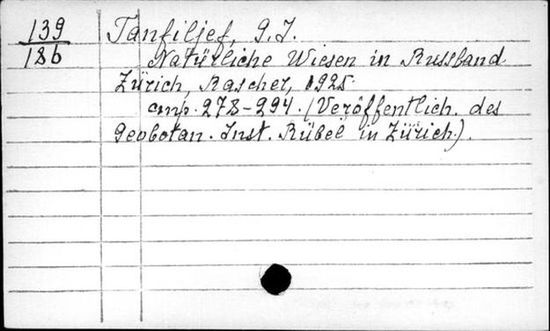 139 Tanfiljef, G.I.
186 Natürliche Wiesen in Russland
Zürich, Rascher, 1925
стр. 278-294. (Veröffentlich. des
Geobotan. Inst. Rübel in Zürich).